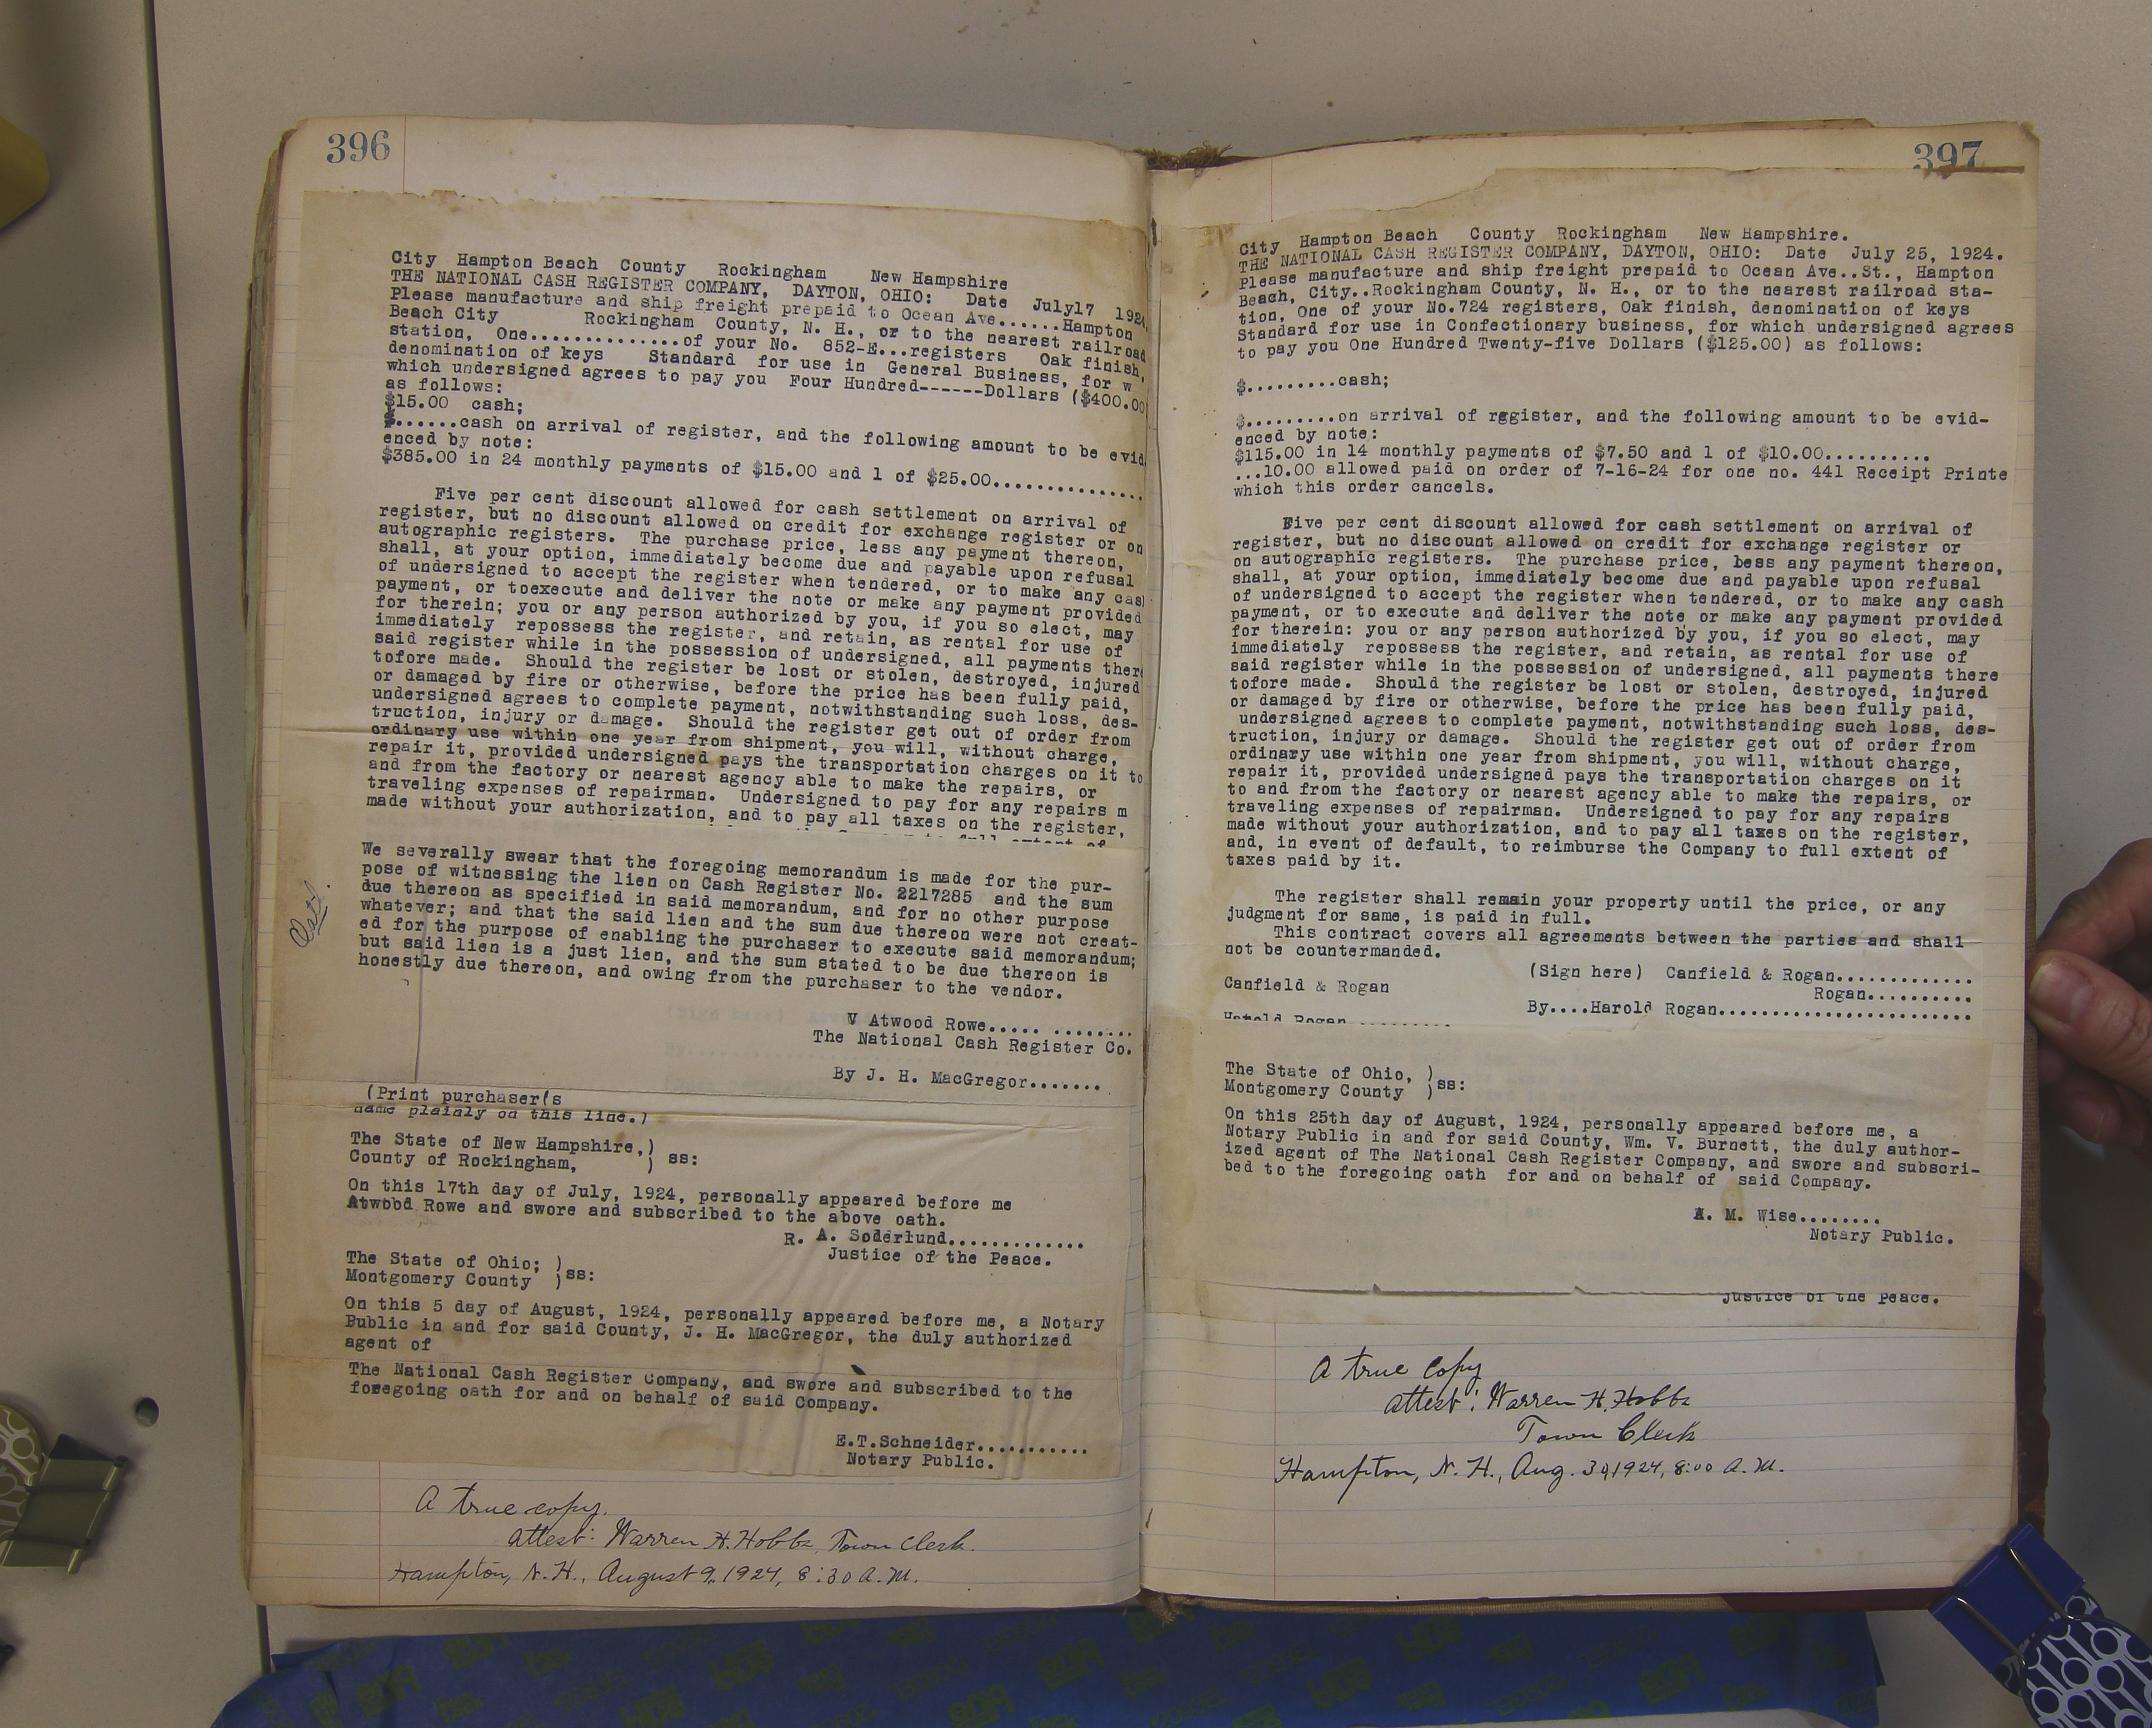 396
City Hampton Beach County Rockingham New Hampshire
THE NATIONAL CASH REGISTER COMPANY, DAYTON, OHIO: Date July17 192
Please manufacture and ship freight prepaid to Ocean Ave......Hampton
Beach City Rockingham County, N. H., or to the nearest railroad
station, One...............of your No. 852-E...registers Oak finish,
denomination of keys Standard for use in General Business, for w
which undersigned agrees to pay you Four Hundred------Dollars ($400.00
as follows:
$15.00 cash;
$.......cash on arrival of register, and the following amount to be evid
enced by note:
$385.00 in 24 monthly payments of $15.00 and 1 of $25.00...............
Five per cent discount allowed for cash settlement on arrival of
register, but no discount allowed on credit for exchange register or on
autographic registers. The purchase price, less any payment thereon,
shall, at your option, immediately become due and payable upon refusal
of undersigned to accept the register when tendered, or to make any cas
payment, or toexecute and deliver the note or make any payment provided
for therein; you or any person authorized by you, if you so elect, may
immediately repossess the register, and retain, as rental for use of
said register while in the possession of undersigned, all payments there
tofore made. Should the register be lost or stolen, destroyed, injured
or damaged by fire or otherwise, before the price has been fully paid,
undersigned agrees to complete payment, notwithstanding such loss, des-
truction, injury or damage. Should the register get out of order from
ordinary use within one year from shipment, you will, without charge,
repair it, provided undersigned pays the transportation charges on it to
and from the factory or nearest agency able to make the repairs, or
traveling expenses of repairman. Undersigned to pay for any repairs m
made without your authorization, and to pay all taxes on the register,
full extent of
We severally swear that the foregoing memorandum is made for the pur-
pose of witnessing the lien on Cash Register No. 2217285 and the sum
due thereon as specified in said memorandum, and for no other purpose
whatever; and that the said lien and the sum due thereon were not creat-
ed for the purpose of enabling the purchaser to execute said memorandum;
but said lien is a just lien, and the sum stated to be due thereon is
honestly due thereon, and owing from the purchaser to the vendor.
V Atwood Rowe..... ........
The National Cash Register Co.
By J. H. MacGregor.......
(Print purchaser(s
name plainly on this line.)
The State of New Hampshire,)
County of Rockingham, ) ss:
On this 17th day of July, 1924, personally appeared before me
Atwood Rowe and swore and subscribed to the above oath.
R. A. Soderlund.............
Justice of the Peace.
The State of Ohio; )
Montgomery County )ss:
On this 5 day of August, 1924, personally appeared before me, a Notary
Public in and for said County, J. H. MacGregor, the duly authorized
agent of
The National Cash Register Company, and swore and subscribed to the
foregoing oath for and on behalf of said Company.
E.T.Schneider...........
Notary Public.
A true copy.
Attest: Warren H. Hobbs, Town Clerk.
Hampton, N. H., August 9, 1924, 8:30 A.M.
397
City Hampton Beach County Rockingham New Hampshire.
THE NATIONAL CASH REGISTER COMPANY, DAYTON, OHIO: Date July 25, 1924.
Please manufacture and ship freight prepaid to Ocean Ave..St., Hampton
Beach, City..Rockingham County, N. H., or to the nearest railroad sta-
tion, One of your No.724 registers, Oak finish, denomination of keys
Standard for use in Confectionary business, for which undersigned agrees
to pay you One Hundred Twenty-five Dollars ($125.00) as follows:
$.........cash;
$.........on arrival of rggister, and the following amount to be evid-
enced by note:
$115.00 in 14 monthly payments of $7.50 and 1 of $10.00..........
...10.00 allowed paid on order of 7-16-24 for one no. 441 Receipt Printe
which this order cancels.
Five per cent discount allowed for cash settlement on arrival of
register, but no discount allowed on credit for exchange register or
on autographic registers. The purchase price, bess any payment thereon,
shall, at your option, immediately become due and payable upon refusal
of undersigned to accept the register when tendered, or to make any cash
payment, or to execute and deliver the note or make any payment provided
for therein: you or any person authorized by you, if you so elect, may
immediately repossess the register, and retain, as rental for use of
said register while in the possession of undersigned, all payments there
tofore made. Should the register be lost or stolen, destroyed, injured
or damaged by fire or otherwise, before the price has been fully paid,
undersigned agrees to complete payment, notwithstanding such loss, des-
truction, injury or damage. Should the register get out of order from
ordinary use within one year from shipment, you will, without charge,
repair it, provided undersigned pays the transportation charges on it
to and from the factory or nearest agency able to make the repairs, or
traveling expenses of repairman. Undersigned to pay for any repairs
made without your authorization, and to pay all taxes on the register,
and, in event of default, to reimburse the Company to full extent of
taxes paid by it.
The register shall remain your property until the price, or any
judgment for same, is paid in full.
This contract covers all agreements between the parties and shall
not be countermanded.
(Sign here) Canfield & Rogan.............
Canfield & Rogan
Rogan..........
By....Harold Rogan........................
Harold Rogan .........
The State of Ohio, )
Montgomery County )ss:
On this 25th day of August, 1924, personally appeared before me, a
Notary Public in and for said County, Wm. V. Burnett, the duly author-
ized agent of The National Cash Register Company, and swore and subscri-
bed to the foregoing oath for and on behalf of said Company.
A. M. Wise........
Notary Public.
Justice of the Peace.
A true Copy
Attest: Warren H. Hobbs
Town Clerk
Hampton, N. H., Aug. 30, 1924, 8:00 A.M.